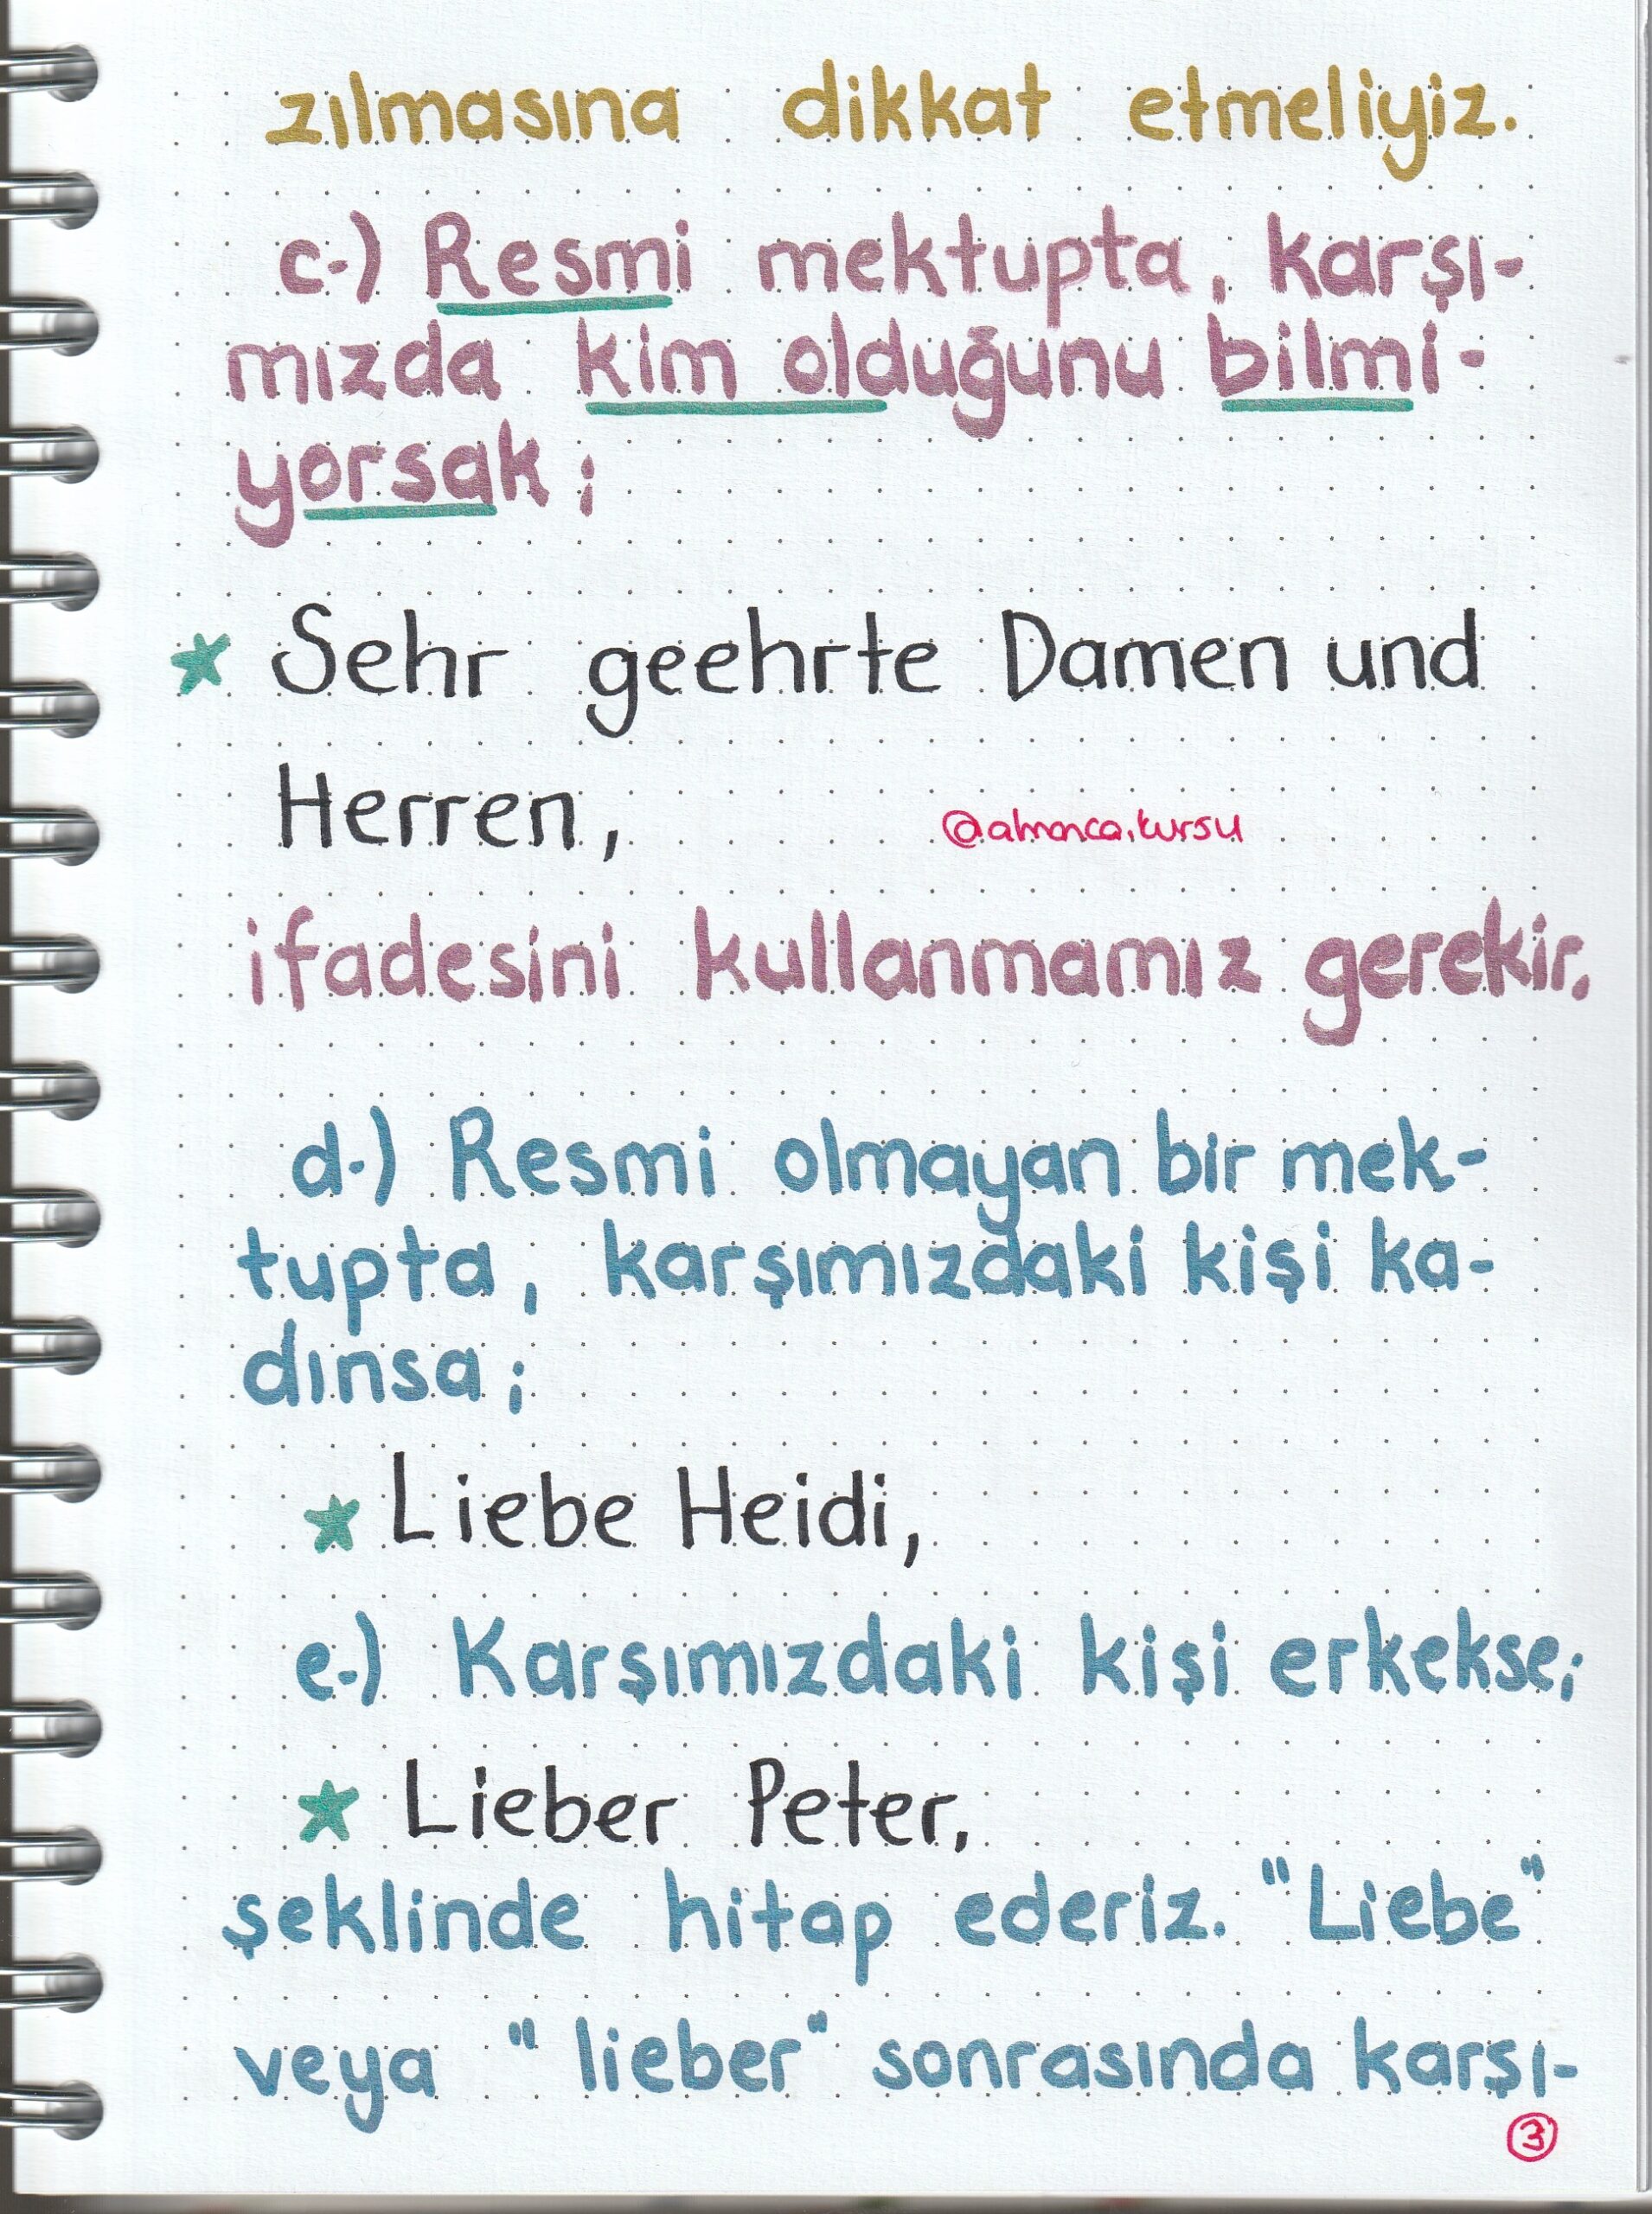 zılmasına dikkat etmeliyiz.
c-) Resmi mektupta, karşı-
mızda kim olduğunu bilmi-
yorsak;
Sehr geehrte Damen und
Herren,
@almanca.kursu
ifadesini kullanmamız gerekir.
d-) Resmi olmayan bir mek-
tupta, karşımızdaki kişi ka-
dınsa;
Liebe Heidi,
e-) Karşımızdaki kişi erkekse;
Lieber Peter,
şeklinde hitap ederiz. "Liebe"
veya "lieber" sonrasında karşı-
3